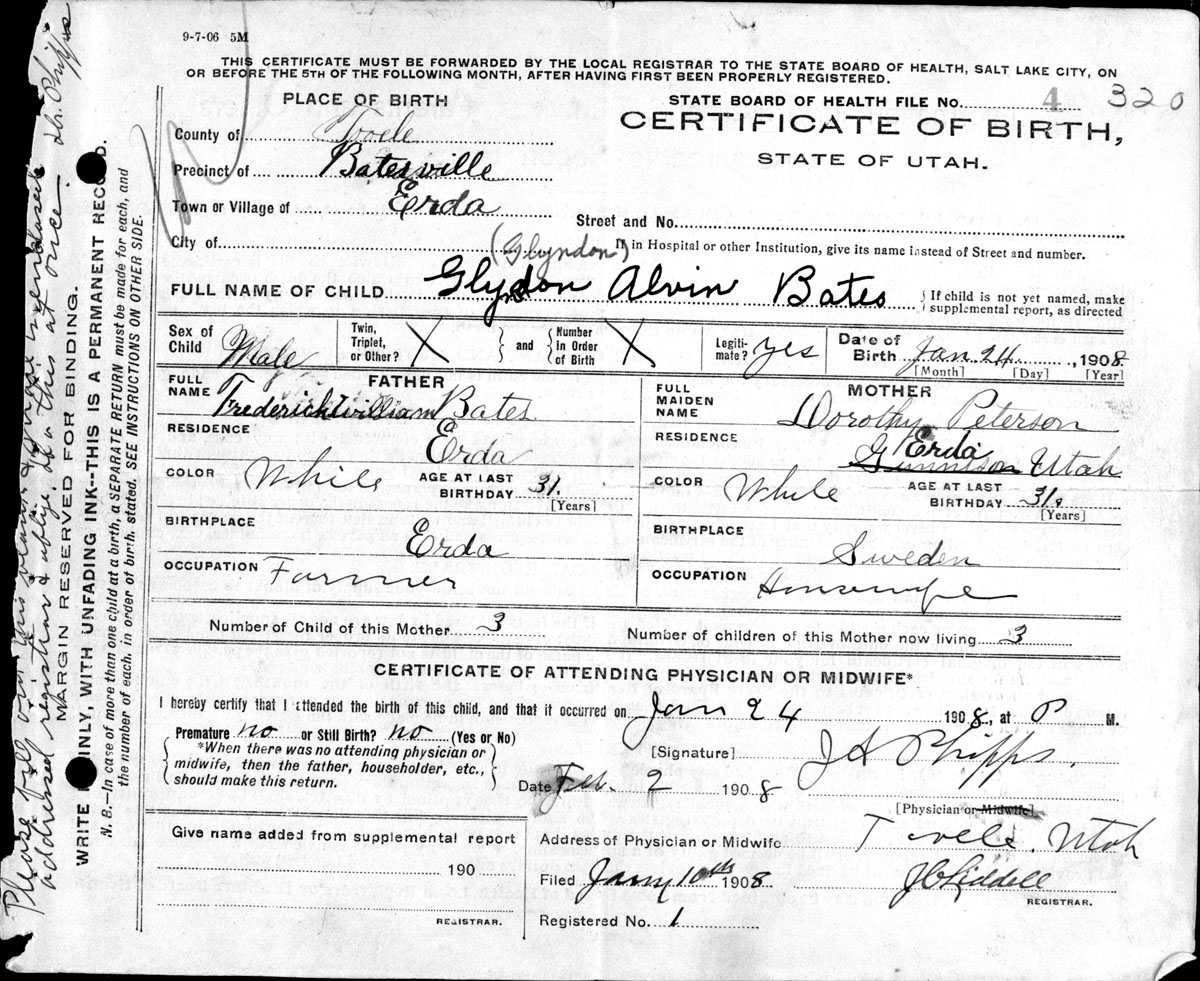 9-7-06 5M
THIS CERTIFICATE MUST BE FORWARDED BY THE LOCAL REGISTRAR TO THE STATE BOARD OF HEALTH, SALT LAKE CITY, ON
OR BEFORE THE 5TH OF THE FOLLOWING MONTH, AFTER HAVING FIRST BEEN PROPERLY REGISTERED.
PLACE OF BIRTH
STATE BOARD OF HEALTH FILE No. 4 320
CERTIFICATE OF BIRTH,
STATE OF UTAH.
County of Tooele
Precinct of Batesville
Town or Village of Erda
Street and No.
City of
(Glyndon) If in Hospital or other Institution, give its name instead of Street and number.
FULL NAME OF CHILD Glyndon Alvin Bates { If child is not yet named, make supplemental report, as directed
Sex of Child Male
Twin, Triplet, or Other? X } and { Number in Order of Birth X
Legitimate? yes
Date of Birth Jan. 24, 1908.
[Month] [Day] [Year]
FATHER
FULL NAME Frederick William Bates
RESIDENCE Erda
COLOR White AGE AT LAST BIRTHDAY 31.
[Years]
BIRTHPLACE Erda
OCCUPATION Farmer
MOTHER
FULL MAIDEN NAME Dorothy Peterson
RESIDENCE Erda
Gunnison Utah
COLOR White AGE AT LAST BIRTHDAY 31.
[Years]
BIRTHPLACE Sweden
OCCUPATION Housewife
Number of Child of this Mother 3 Number of children of this Mother now living 3
CERTIFICATE OF ATTENDING PHYSICIAN OR MIDWIFE*
I hereby certify that I attended the birth of this child, and that it occurred on Jan 24 1908, at P M.
Premature no or Still Birth? no (Yes or No)
{ *When there was no attending physician or
midwife, then the father, householder, etc.,
should make this return. }
[Signature] J A Phipps.
Date Feb. 2 1908
[Physician or Midwife]
Give name added from supplemental report
190
REGISTRAR.
Address of Physician or Midwife Tooele, Utah
Filed Jany 10th 1908 J C Liddell
REGISTRAR.
Registered No. 1
Please fill out this blank & addressed registrar & oblige. Do this at once. Dr. Phipps
MARGIN RESERVED FOR BINDING.
WRITE PLAINLY, WITH UNFADING INK--THIS IS A PERMANENT RECORD.
N. B.—In case of more than one child at a birth, a SEPARATE RETURN must be made for each, and
the number of each, in order of birth, stated. SEE INSTRUCTIONS ON OTHER SIDE.